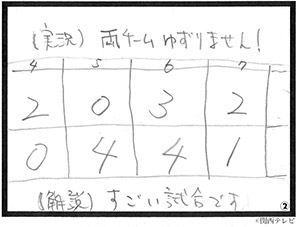 (実況) 両チームゆずりません!
4 5 6 7
2 0 3 2
0 4 4 1
(解説) すごい試合です
②
©関西テレビ